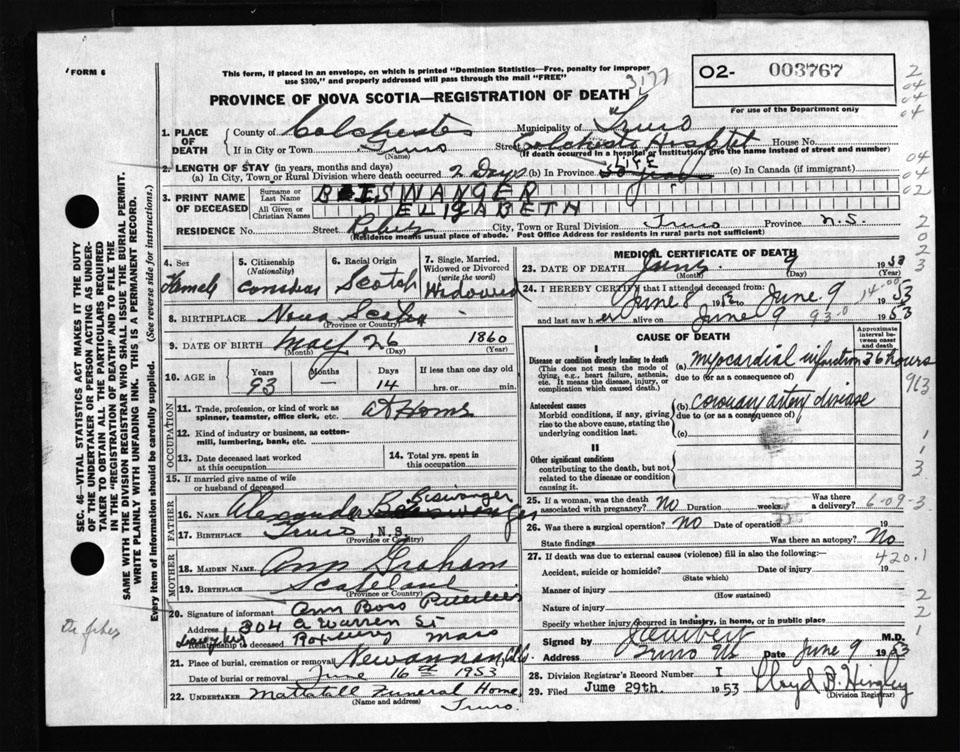 FORM 6
This form, if placed in an envelope, on which is printed "Dominion Statistics—Free, penalty for improper
use $300," and properly addressed will pass through the mail "FREE"
3177
PROVINCE OF NOVA SCOTIA—REGISTRATION OF DEATH
O2- 003767
For use of the Department only
1. PLACE OF DEATH
County of Colchester Municipality of Truro
If in City or Town Truro Street Colchester Hospital House No.
(Name) (If death occurred in a hospital or institution, give the name instead of street and number)
2. LENGTH OF STAY (in years, months and days)
(a) In City, Town or Rural Division where death occurred 2 Days (b) In Province LIFE (c) In Canada (if immigrant)
3. PRINT NAME OF DECEASED
Surname or Last Name BEISWANGER
All Given or Christian Names ELIZABETH
RESIDENCE No. Street Robie City, Town or Rural Division Truro Province N.S.
(Residence means usual place of abode. Post Office Address for residents in rural parts not sufficient)
4. Sex Female
5. Citizenship (Nationality) Canadian
6. Racial Origin Scotch
7. Single, Married, Widowed or Divorced (write the word) Widowed
8. BIRTHPLACE Nova Scotia
(Province or Country)
9. DATE OF BIRTH May 26 1860
(Month) (Day) (Year)
10. AGE in Years Months Days If less than one day old
93 — 14 hrs. or min.
OCCUPATION
11. Trade, profession, or kind of work as spinner, teamster, office clerk, etc. At Home
12. Kind of industry or business, as cotton-mill, lumbering, bank, etc.
13. Date deceased last worked at this occupation
14. Total yrs. spent in this occupation
15. If married give name of wife or husband of deceased
FATHER
16. NAME Alexander Beiswanger
17. BIRTHPLACE Truro N.S.
(Province or Country)
MOTHER
18. MAIDEN NAME Ann Graham
19. BIRTHPLACE Scotland
(Province or Country)
20. Signature of informant Ann Boss
Address 304 a Warren St
Roxbury Mass
Relationship to deceased
21. Place of burial, cremation or removal New annan, Col Co.
Date of burial or removal June 16th 1953
22. UNDERTAKER Mattatall Funeral Home
(Name and address) Truro.
MEDICAL CERTIFICATE OF DEATH
23. DATE OF DEATH June 9 1953
(Month) (Day) (Year)
24. I HEREBY CERTIFY that I attended deceased from:
June 8 1953 to June 9 1953
and last saw her alive on June 9 1953
14.00
93.0
CAUSE OF DEATH
Approximate interval between onset and death
I
Disease or condition directly leading to death
(This does not mean the mode of dying, e.g., heart failure, asthenia, etc. It means the disease, injury, or complication which caused death.)
(a) myocardial infarction 36 hours
due to (or as a consequence of)
913
Antecedent causes
Morbid conditions, if any, giving rise to the above cause, stating the underlying condition last.
(b) coronary artery disease
due to (or as a consequence of)
(c)
II
Other significant conditions
contributing to the death, but not related to the disease or condition causing it.
25. If a woman, was the death associated with pregnancy? NO Duration weeks Was there a delivery?
6-09-3
26. Was there a surgical operation? NO Date of operation 19
State findings Was there an autopsy? No
27. If death was due to external causes (violence) fill in also the following:—
420.1
Accident, suicide or homicide? Date of injury 19
(State which)
Manner of injury
(How sustained)
Nature of injury
Specify whether injury occurred in industry, in home, or in public place
Signed by M.D.
Address Truro NS Date June 9 1953
28. Division Registrar's Record Number I
29. Filed June 29th. 1953 Lloyd A. Hingley
(Division Registrar)
SEC. 46—VITAL STATISTICS ACT MAKES IT THE DUTY
OF THE UNDERTAKER OR PERSON ACTING AS UNDER-
TAKER TO OBTAIN ALL THE PARTICULARS REQUIRED
IN THE "REGISTRATION OF DEATH" AND TO FILE THE
SAME WITH THE DIVISION REGISTRAR WHO SHALL ISSUE THE BURIAL PERMIT.
WRITE PLAINLY WITH UNFADING INK. THIS IS A PERMANENT RECORD.
Every item of information should be carefully supplied. (See reverse side for instructions.)
2
04
04
04
04
04
02
2
0
2
2
3
1
1
3
2
2
1